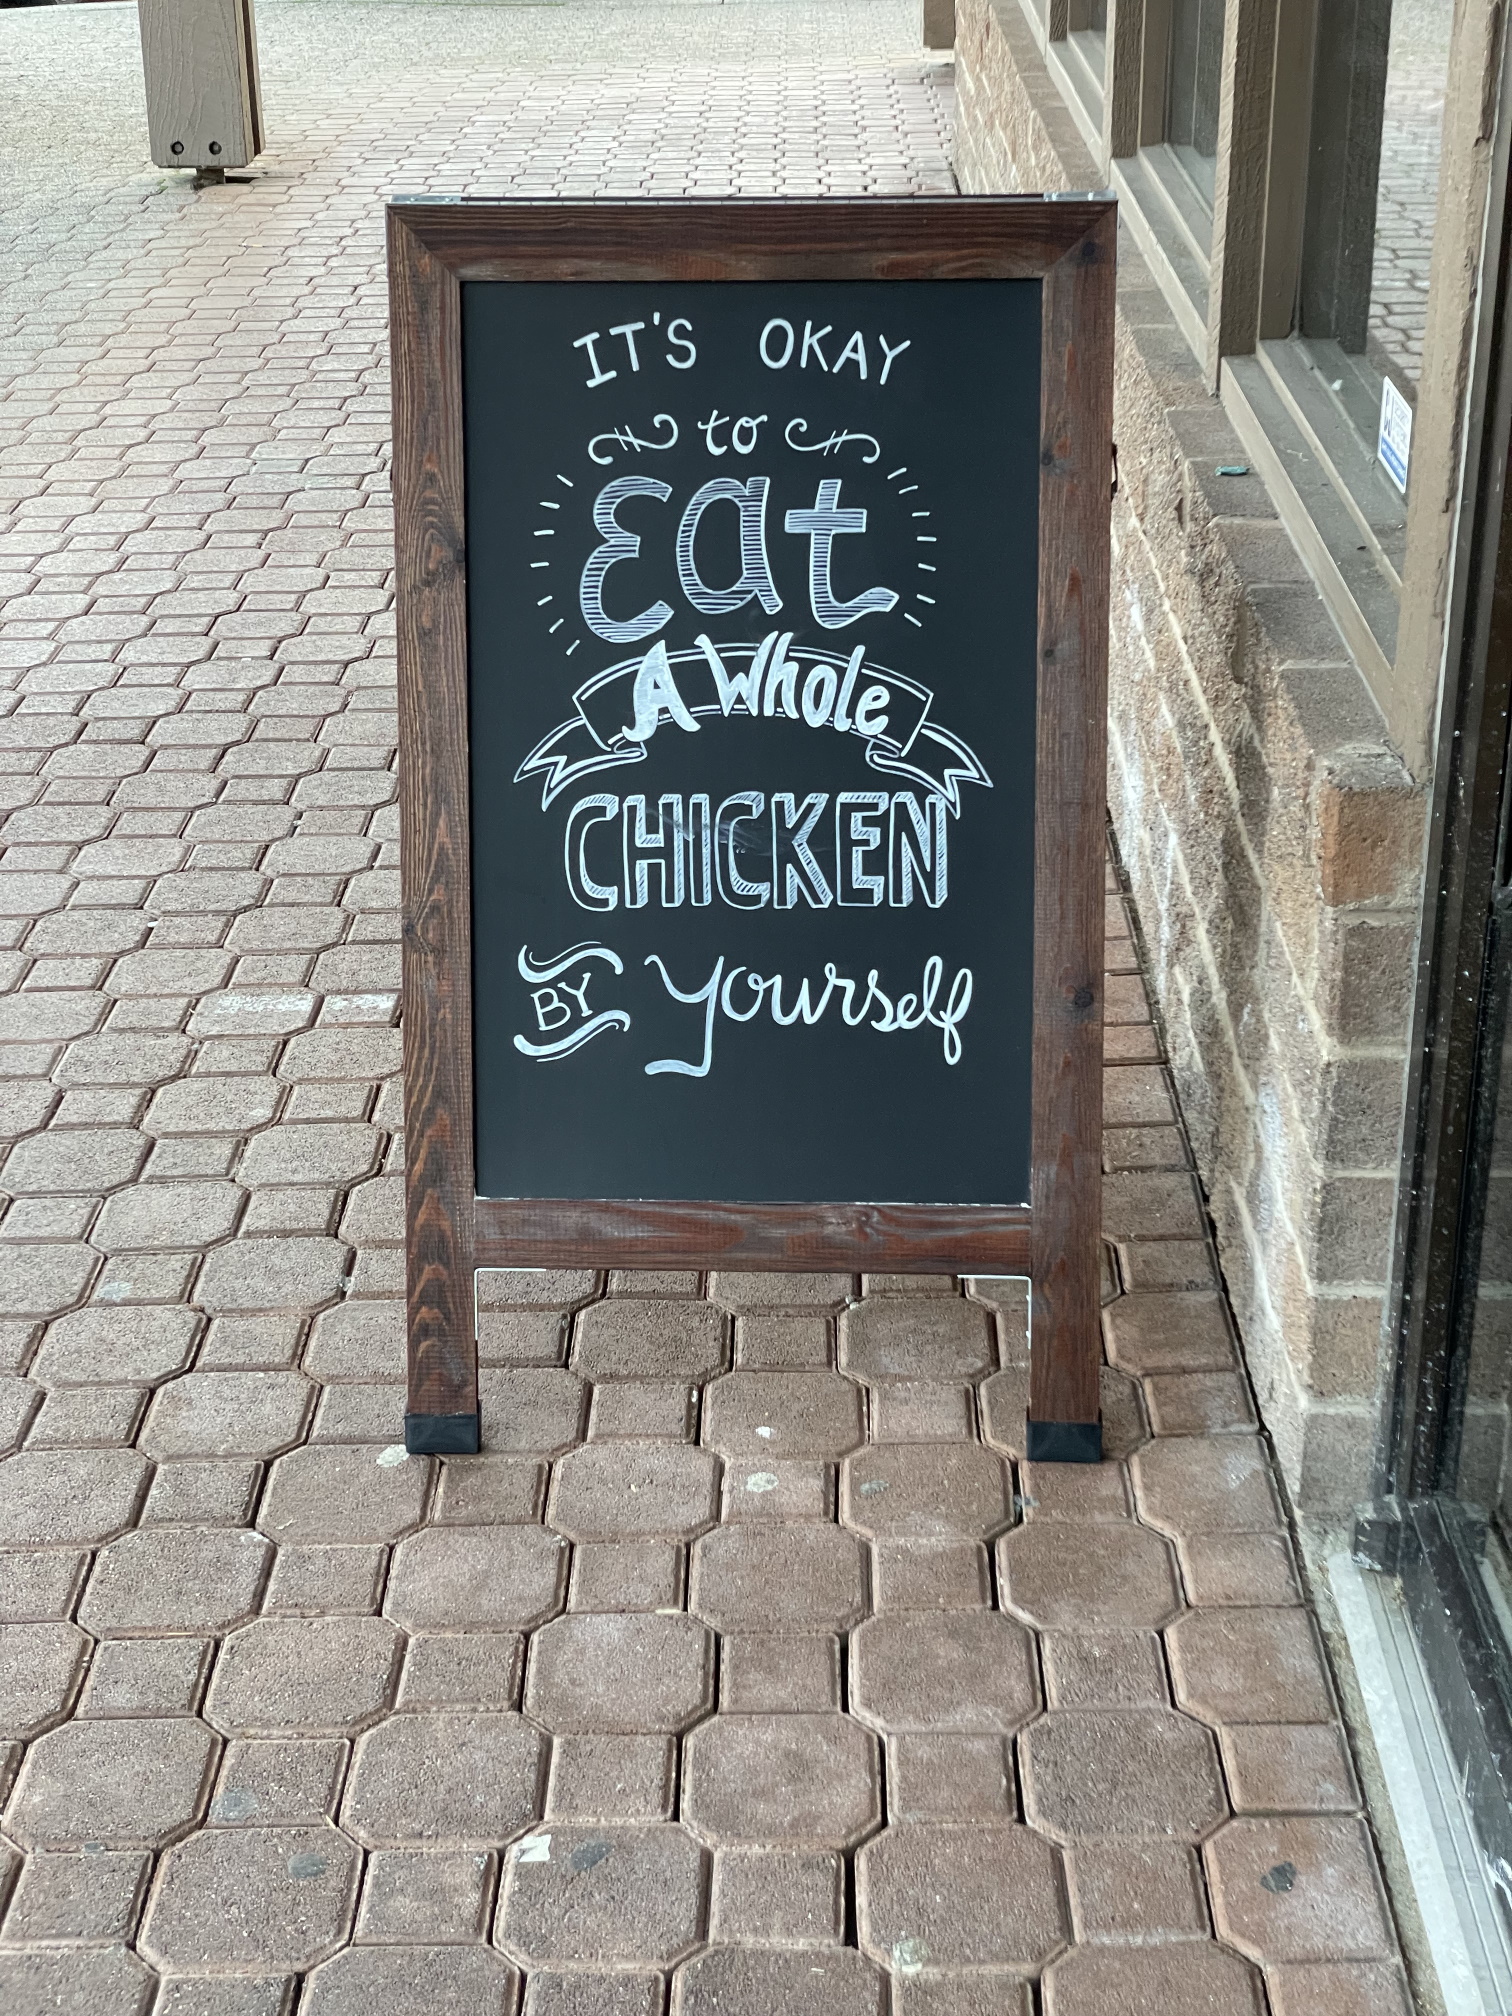 IT'S OKAY
to
Eat
A Whole
CHICKEN
BY yourself